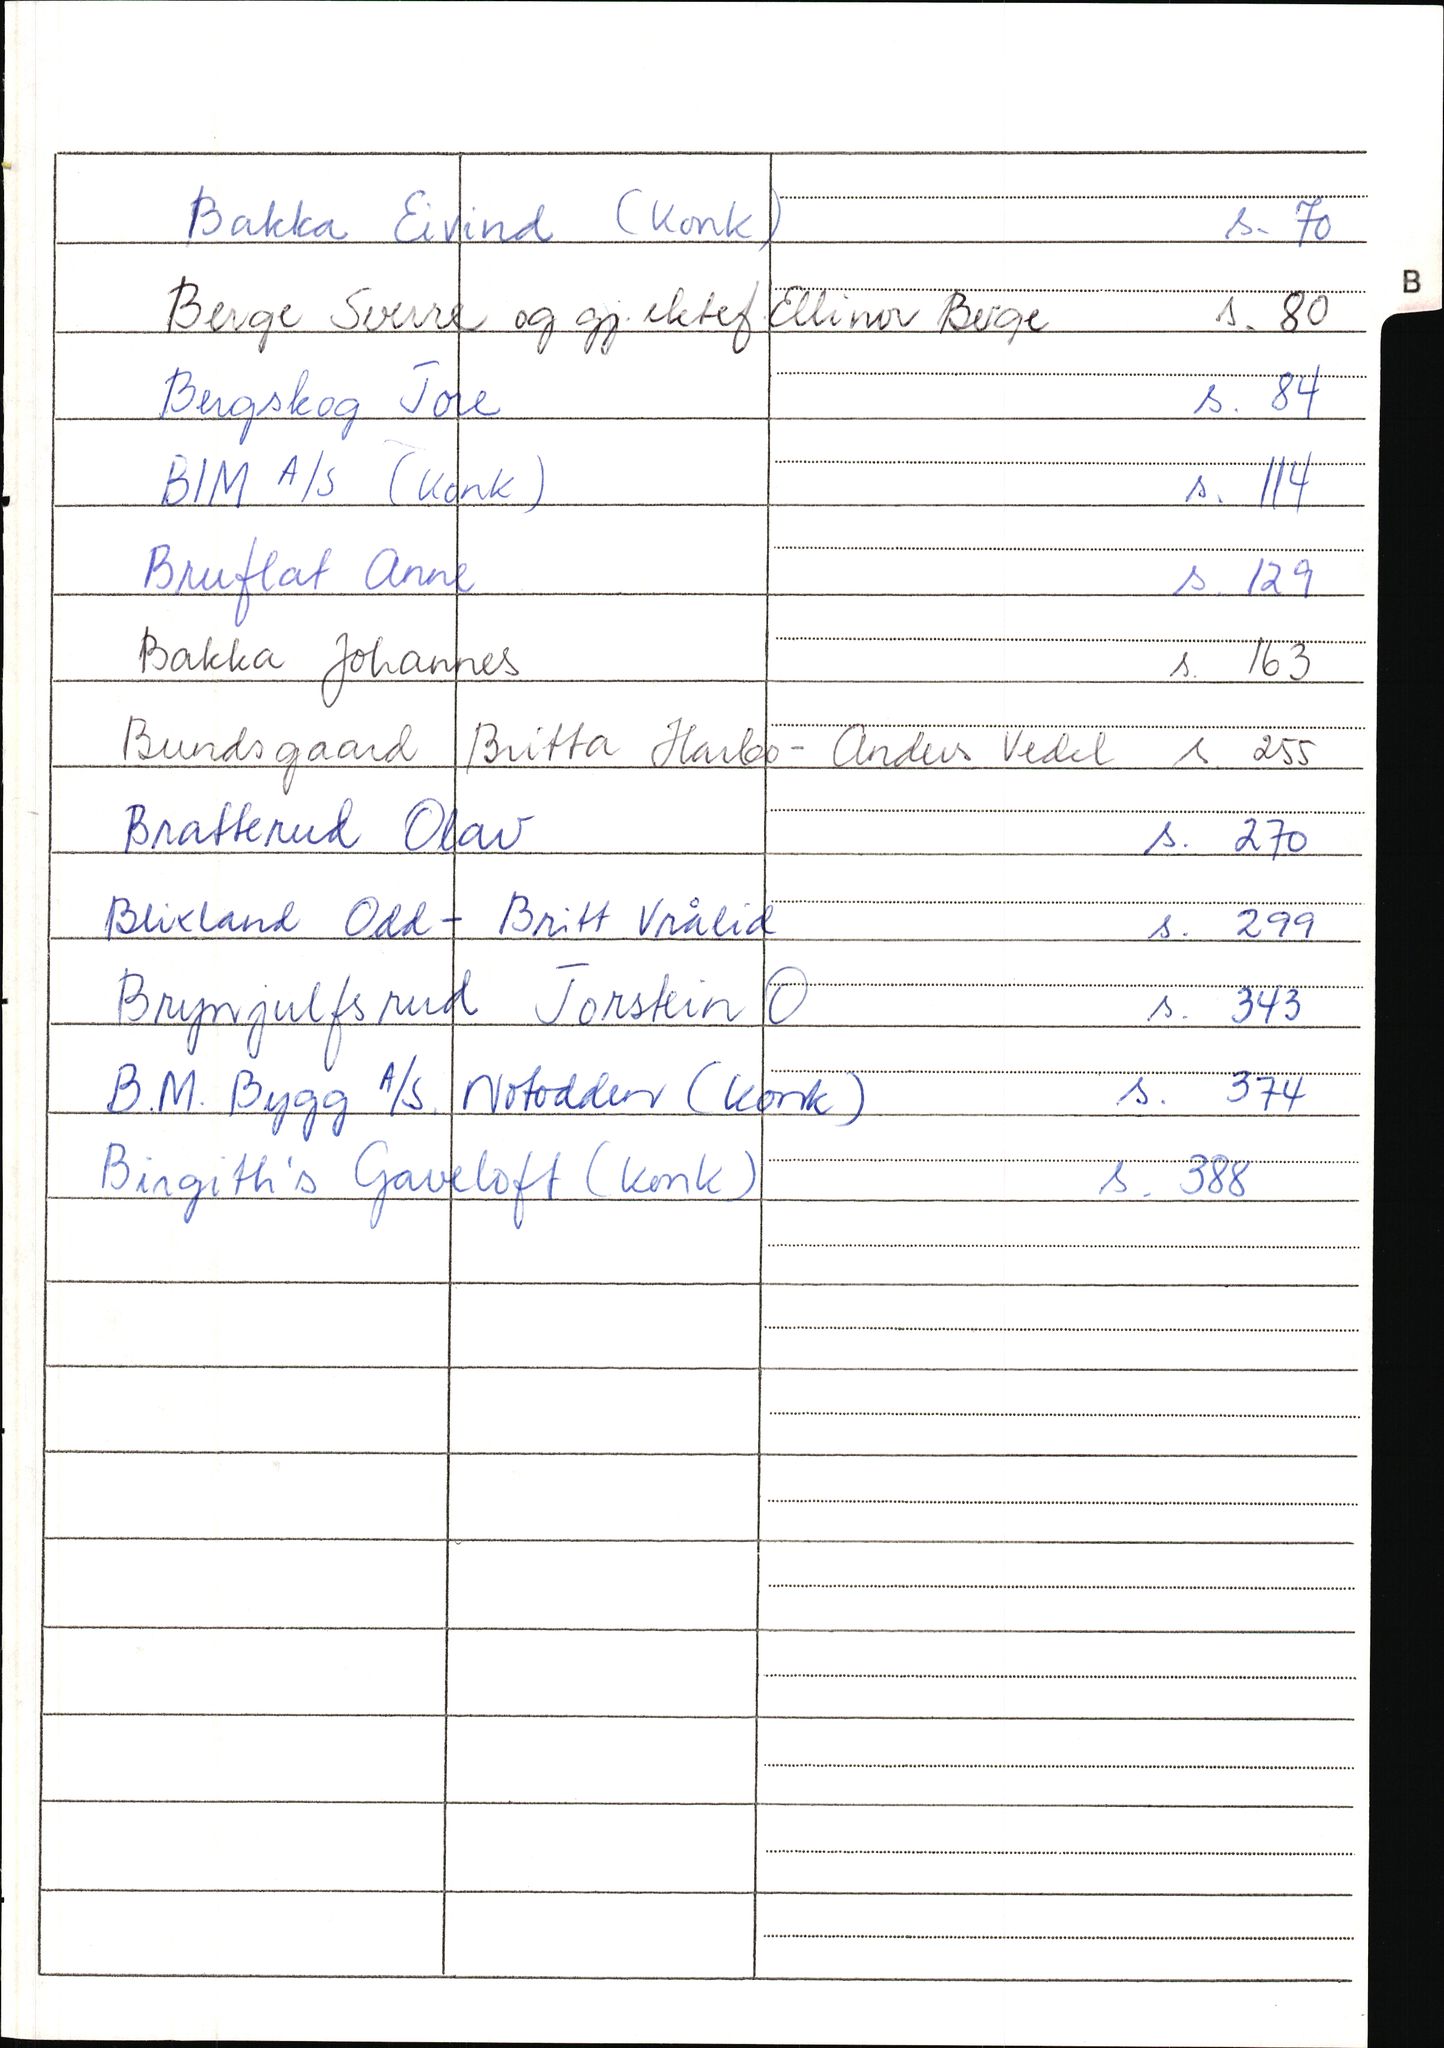 Bakka Eivind (Konk) s. 70
B
Berge Sverre og gj. ektef. Ellinor Berge s. 80
Bergskog Tore s. 84
BIM A/S (Konk) s. 114
Bruflat Anne s. 129
Bakka Johannes s. 163
Bundsgaard Britta Harbo - Anders Vedel s. 255
Bratterud Olav s. 270
Blixland Odd - Britt Vrålid s. 299
Brynjulfsrud Torstein O s. 343
B.M. Bygg A/S. Notodden (Konk) s. 374
Birgith's Gaveloft (Konk) s. 388